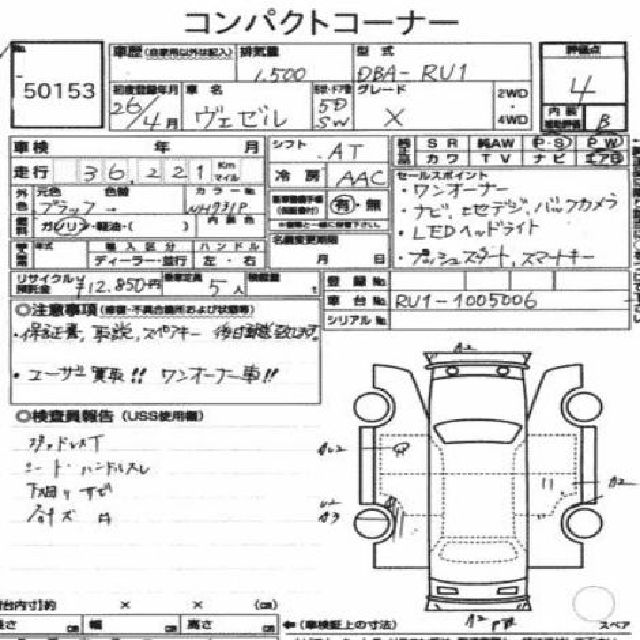 コンパクトコーナー
No.
50153
車歴 (自家用以外は記入)
排気量
1,500
型式
DBA-RU1
評価点
4
初度登録年月
26/4月
車名
ヴェゼル
5D
SW
グレード
X
2WD
・
4WD
内装
B
車検 年 月
シフト AT
SR 純AW P・S PW
カワ TV ナビ エアB
走行 36,221 Km
マイル
冷房 AAC
セールスポイント
・ワンオーナー
・ナビ、地デジ、バックカメラ
・LEDヘッドライト
・プッシュスタート、スマートキー
外色 元色 色替 カラーNo.
ブラック → NH731P
内装色
有・無
燃料 ガソリン・軽油・( )
名義変更期限
月 日
年式 輸入区分 ハンドル
ディーラー・並行 左・右
リサイクル預託金 ¥12,850円
乗車定員 5人
積載量 t
登録No.
車台No. RU1-1005006
シリアルNo.
◎注意事項 (修復・不具合箇所および状態等)
・保証書、取説、スペアキー 後日郵送致します。
・ユーザー買取!! ワンオーナー車!!
◎検査員報告 (USS使用欄)
スタッドレスT
シート・ハンドルスレ
下廻りサビ
A2
A2
A2
(車検証上の寸法)
長さ 幅 高さ
スペア